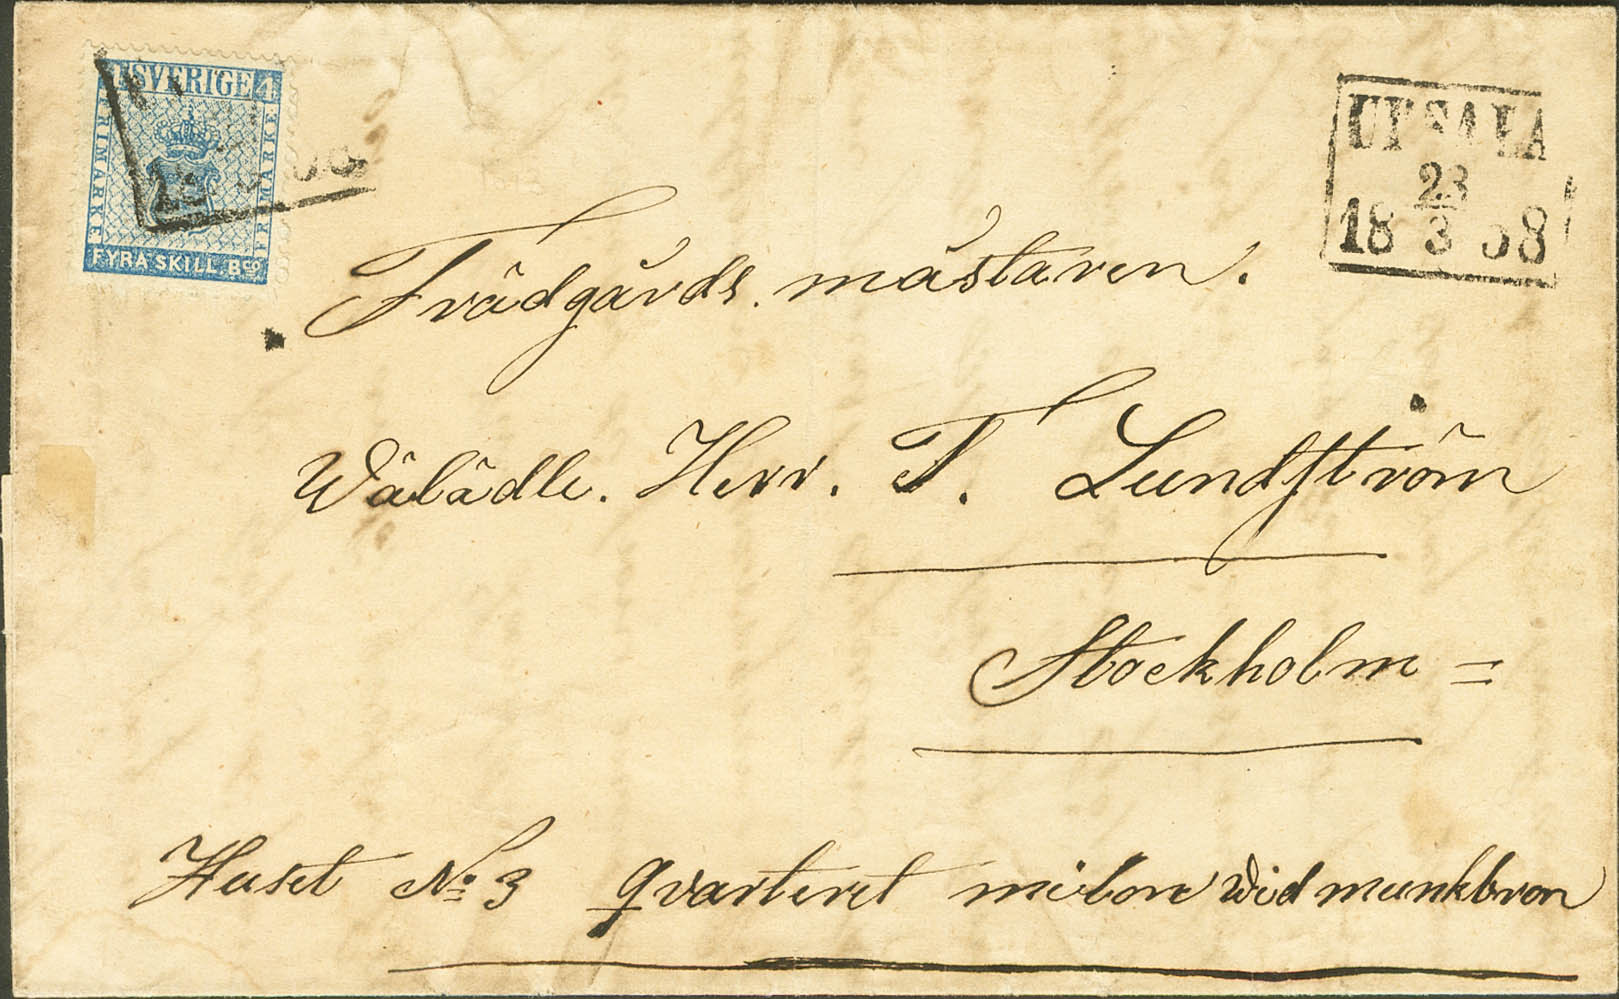 4 SVERIGE 4
FRIMÄRKE
FRIMÄRKE
FYRA SKILL. Bco
UPSALA
23
18 3 58
Trädgårds mästaren.
Wälädle. Herr. T. Lundström
Stockholm =
Huset No 3 qvarteret milon wid munkbron